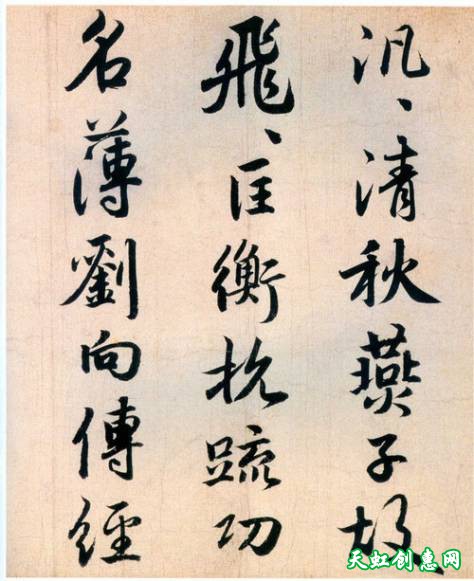 汎〻清秋燕子故
飛〻匡衡抗疏功
名薄劉向傳經
天虹创意网